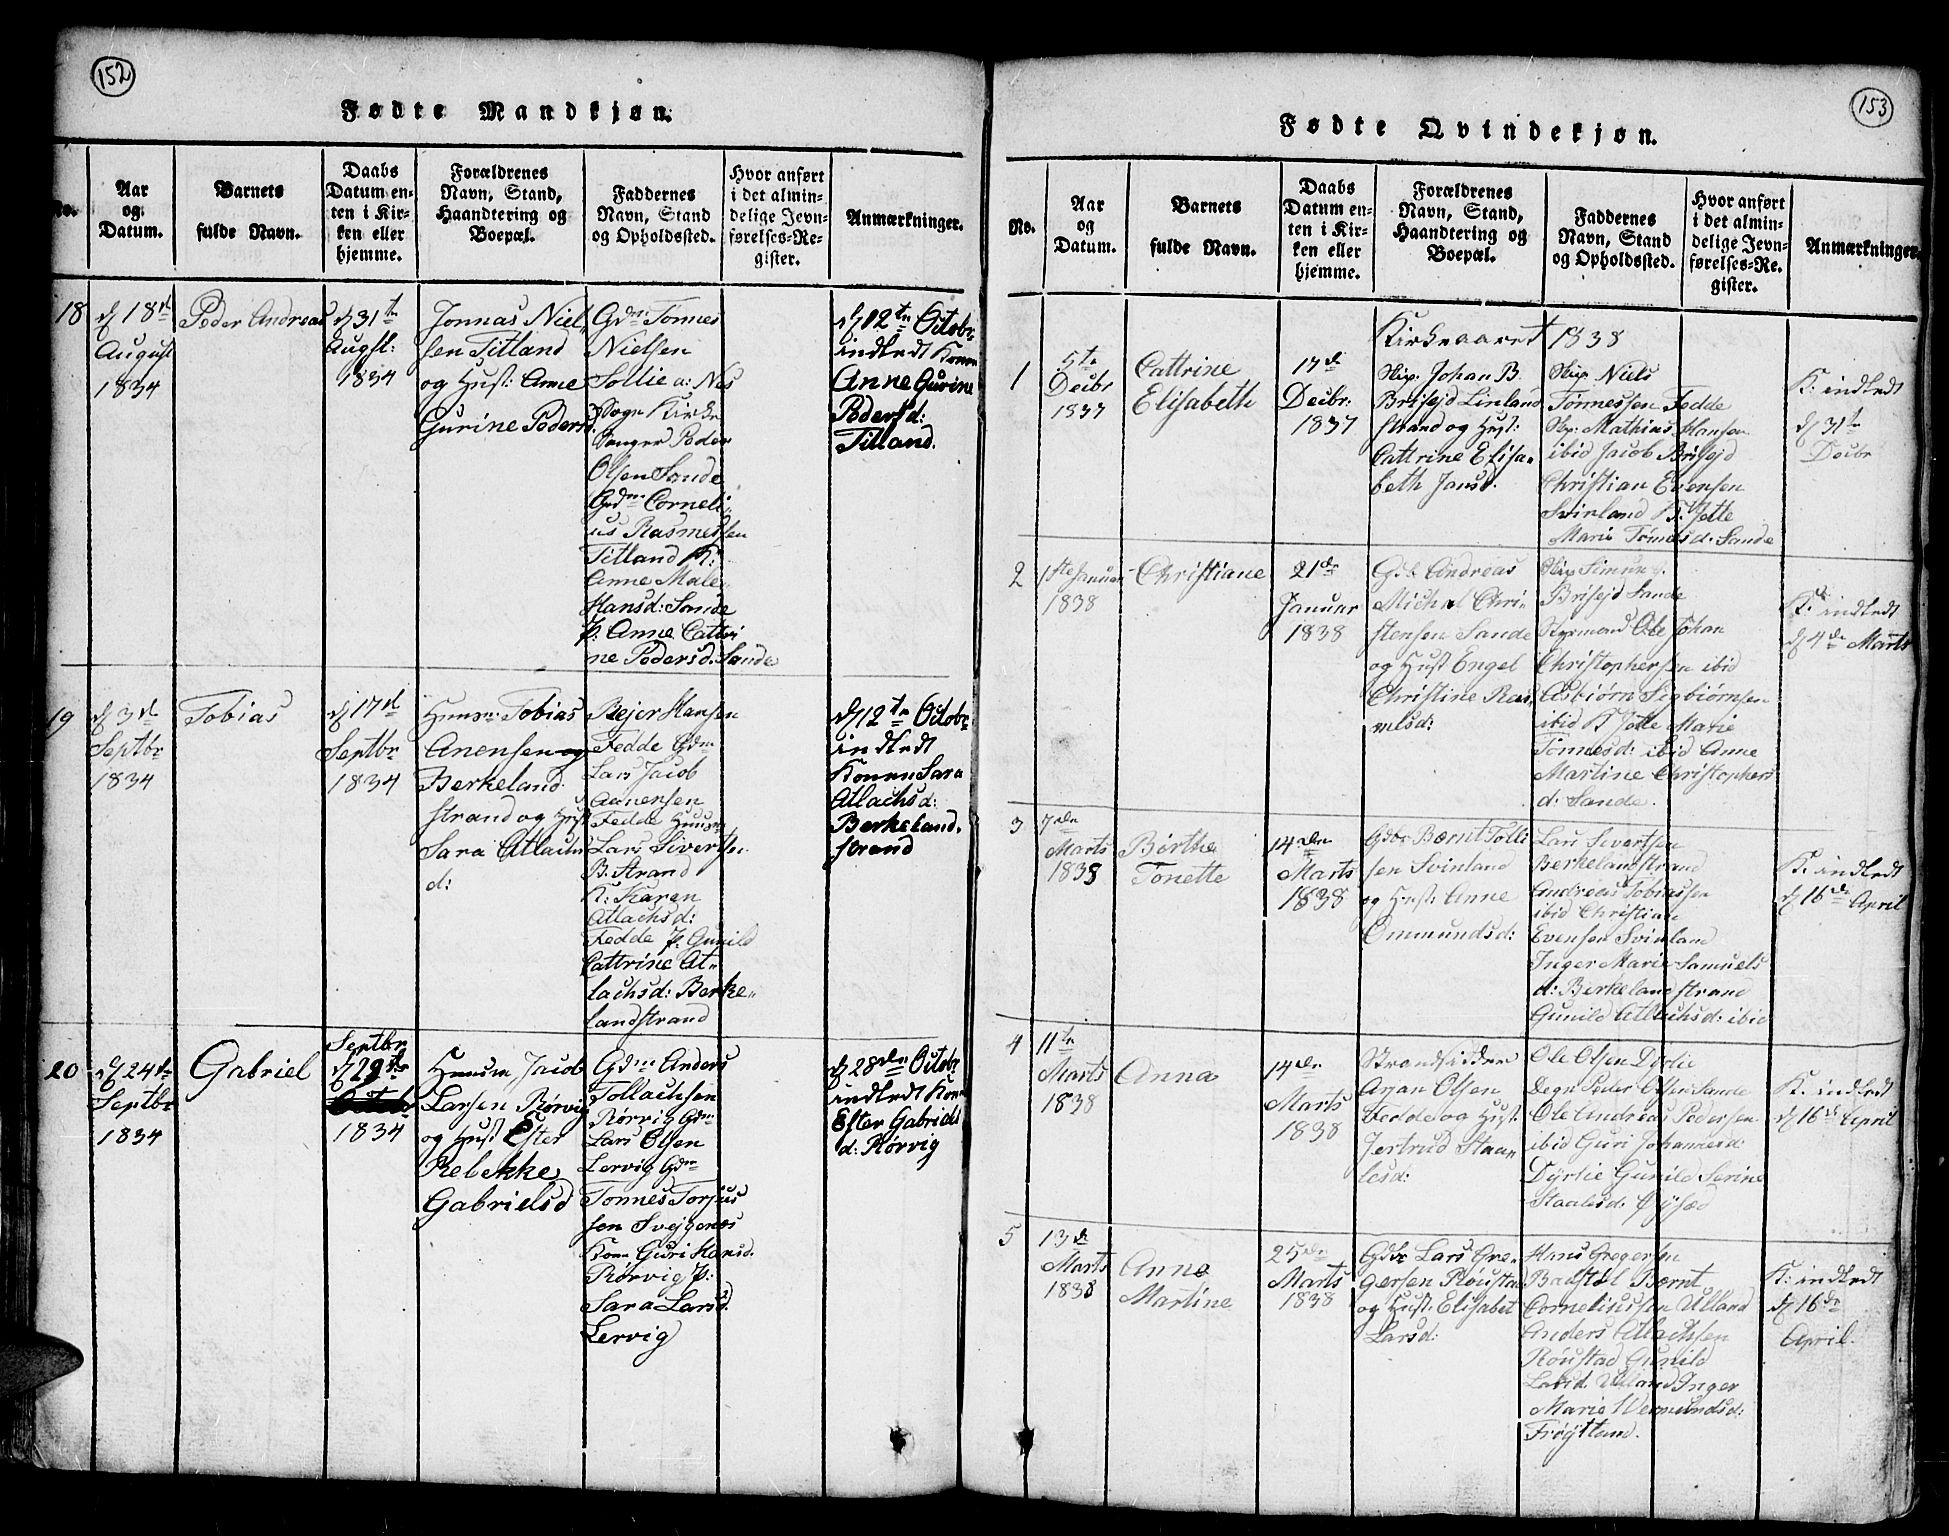 152
Fødte Mandkjøn.
No.
Aar
og
Datum.
Barnets
fulde Navn.
Daabs
Datum en-
ten i Kir-
ken eller
hjemme.
Forældrenes
Navn, Stand,
Haandtering og
Boepæl.
Faddernes
Navn, Stand
og Opholdssted.
Hvor anført
i det almin-
delige Jevn-
førelses-Re-
gister.
Anmærkninger.
18
d 18de
August
1834
Peder Andreas
d 31te
Augst:
1834
Jonnas Niel-
sen Titland
og Hust: Anne
Gurine Pedersd.
Gdm: Tønnes
Nielsen
Sollie a: Nes
Sogn Kirke
Sanger Peder
Olsen Sande
Gdm Corneli-
us Rasmessen
Titland K:
Anne Male
Hansd: Sande
p: Anne Cattri
ne Pedersd. Sande
d 12te Octobr
indledt Konen
Anne Gurine
Pedersd:
Titland.
19
d 3de
Septbr
1834
Tobias
d 17de
Septbr
1834
Huusm: Tobias
Anensen og
Berkeland
strand og Hust
Sara Atlachs
d:
Rejer Hansen
Fedde Gdm
Lars Jacob
Aanensen
Fedde Huusm
Lars Sivertsen
B: Strand
K: Karen
Atlachsd:
Fedde P: Gunild
Cattrine At-
lachsd: Berke-
landstrand
d 12te Octobr
indledt
Konen Sara
Atlachsd:
Berkeland.
strand
20
d 24de
Septbr
1834
Gabriel
Septbr
d 29de
1834
Huusm, Jacob
Larsen Rørvig
og Hust Ester
Rebekke
Gabrielsd
Gdm Anders
Tollachsen
Rørvig Gdm
Lars Olsen
Lervig Gdm
Tønnes Torjus
sen Svejgenæs
Kone Guri Hansd.
Rørvig P:
Sara Larsd.
Lervig
d 28de Octobr
indledt Konen
Ester Gabriels
d: Rørvig
153
Fødte Qvindekjøn.
No.
Aar
og
Datum.
Barnets
fulde Navn.
Daabs
Datum en-
ten i Kir-
ken eller
hjemme.
Forældrenes
Navn, Stand,
Haandtering og
Boepæl.
Faddernes
Navn, Stand
og Opholdssted.
Hvor anført
i det almin-
delige Jevn-
førelses-Re-
gister.
Anmærkninger.
Kirkeaaret 1838
1
5te
Decbr
1837
Cattrine
Elisabeth
17de
Decbr:
1837
Skip. Johan B.
Brisejd Linland
strand og Hust:
Cattrine Elisa-
beth Jansd.
Skip Niels
Tønnessen Fedde
Skp: Mathias Hansen
ibid Jacob Brisejd
Christian Evensen
Svinland K: Jette
Marie Tønnesd: Sande
K: indledt
d 31te
Decbr
2
1ste Januar
1838
Christiane
21de
Januar
1838
Gdb Andreas
Michel Chri-
stensen Sande
og Hust Engel
Christine Ras-
mesd:
Skip Simun
Brisejd Sande
Styrmand Ole Johan
Christophersen ibid
Asbiørn Segbiørnsen
ibid K Jette Marie
Tønnesd: ibid Anne
Martine Christophers
d: Sande.
K: indledt
d 4de Marts
3
7de
Marts
1838
Børthe
Tonette
14de
Marts
1838
Gdbr Bærnt Tolli
sen Svinland
og Hust: Anne
Ommundsd:
Lars Sivertsen
Berkelandstrand
Andreas Tobiassen
ibid Christian
Evensen Svinland
Inger Marie Samuels
d: Berkelandstrand
Gunild Atlachsd: ibid
K: indledt
d 16de April
4
11te
Marts
1838
Anna
14de
Marts
1838
Strandsidder
Arjan Olsen
Fedde og Hust:
Jertrud Staa-
lesd:
Ole Olsen Dyrlie
Degn Peder Olsen Sande
Ole Andreas Pedersen
ibid Guri Johannesd:
Dyrlie Gunild Serine
Staalesd: Øysæd
K. indledt
d 16de April
5
13de
Marts
1838
Anne
Martine
25de
Marts
1838
Gdbr Lars Gre-
gersen Røustad
og Hust: Elisabet
Larsd:
Hans Gregersen
Badstøl Bærnt
Corneliussen Ulland
Anders Atlachsen
Røustad Gunild
Larsd. Ulland Inger
Marie Wermundsd:
Frøytland.
K: indledt
d 16de
April.